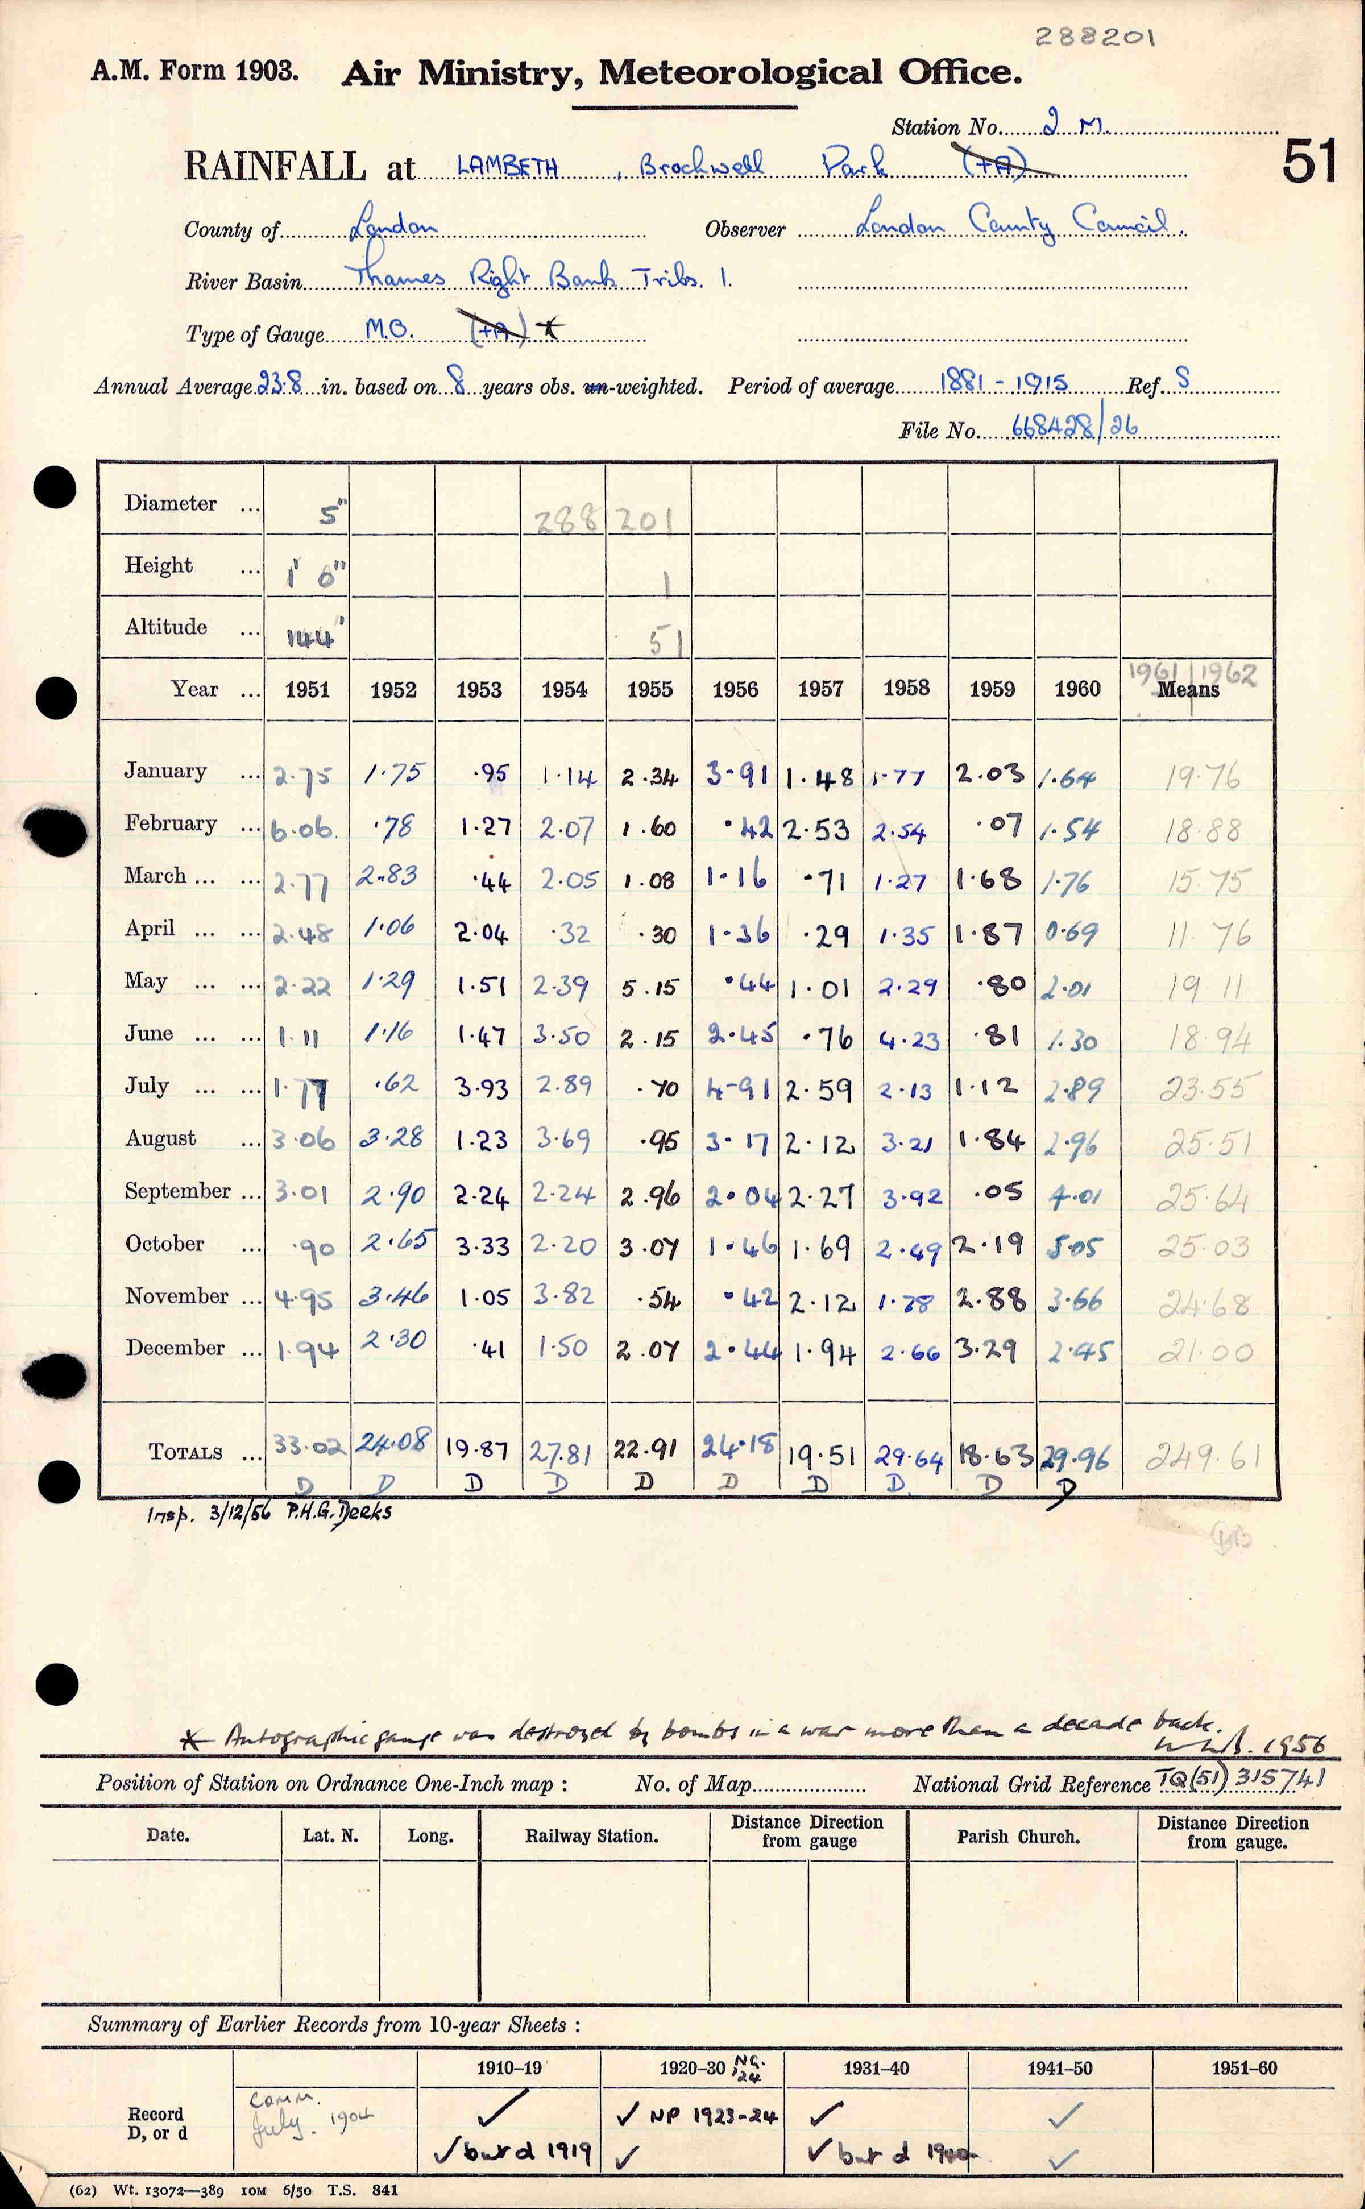 288201
A.M. Form 1903. Air Ministry, Meteorological Office.
Station No. 2 M.
51
RAINFALL at LAMBETH, Brockwell Park (+A)
County of London Observer London County Council.
River Basin Thames Right Bank Tribs. 1.
Type of Gauge M.O. (+A) *
Annual Average 23.8 in. based on 8 years obs. un-weighted. Period of average 1881 - 1915 Ref. S
File No. 668428/26
Diameter ... 5" 288 201
Height ... 1' 0" 1
Altitude ... 144' 51
1961 1962
Year ... 1951 1952 1953 1954 1955 1956 1957 1958 1959 1960 Means
January ... 2.75 1.75 .95 1.14 2.34 3.91 1.48 1.77 2.03 1.64 19.76
February ... 6.06 .78 1.27 2.07 1.60 .42 2.53 2.54 .07 1.54 18.88
March ... ... 2.77 2.83 .44 2.05 1.08 1.16 .71 1.27 1.68 1.76 15.75
April ... ... 2.48 1.06 2.04 .32 .30 1.36 .29 1.35 1.87 0.69 11 76
May ... ... 2.22 1.29 1.51 2.39 5.15 .44 1.01 2.29 .80 2.01 19 11
June ... ... 1.11 1.16 1.47 3.50 2.15 2.45 .76 4.23 .81 1.30 18.94
July ... ... 1.77 .62 3.93 2.89 .70 4.91 2.59 2.13 1.12 2.89 23.55
August ... 3.06 3.28 1.23 3.69 .95 3.17 2.12 3.21 1.84 2.96 25.51
September ... 3.01 2.90 2.24 2.24 2.96 2.04 2.27 3.92 .05 4.01 25.64
October ... .90 2.65 3.33 2.20 3.07 1.46 1.69 2.49 2.19 5.05 25.03
November ... 4.95 3.46 1.05 3.82 .54 .42 2.12 1.78 2.88 3.66 24.68
December ... 1.94 2.30 .41 1.50 2.07 2.44 1.94 2.66 3.29 2.45 21.00
TOTALS ... 33.02 24.08 19.87 27.81 22.91 24.18 19.51 29.64 18.63 29.96 249.61
D D D D D D D D D D
Insp. 3/12/56 P.H.G. Derks
* Autographic gauge was destroyed by bombs in a war more than a decade back.
1956
Position of Station on Ordnance One-Inch map : No. of Map National Grid Reference TQ(51) 315741
Date. Lat. N. Long. Railway Station. Distance Direction from gauge Parish Church. Distance Direction from gauge.
Summary of Earlier Records from 10-year Sheets :
1910–19 1920–30 NG. '24 1931–40 1941–50 1951–60
Record D, or d Comm. July. 1904 ✓ ✓ NP 1923-24 ✓ ✓
✓ but d 1919 ✓ ✓ but d 1940 ✓
(62) Wt. 13072—389 10M 6/50 T.S. 841